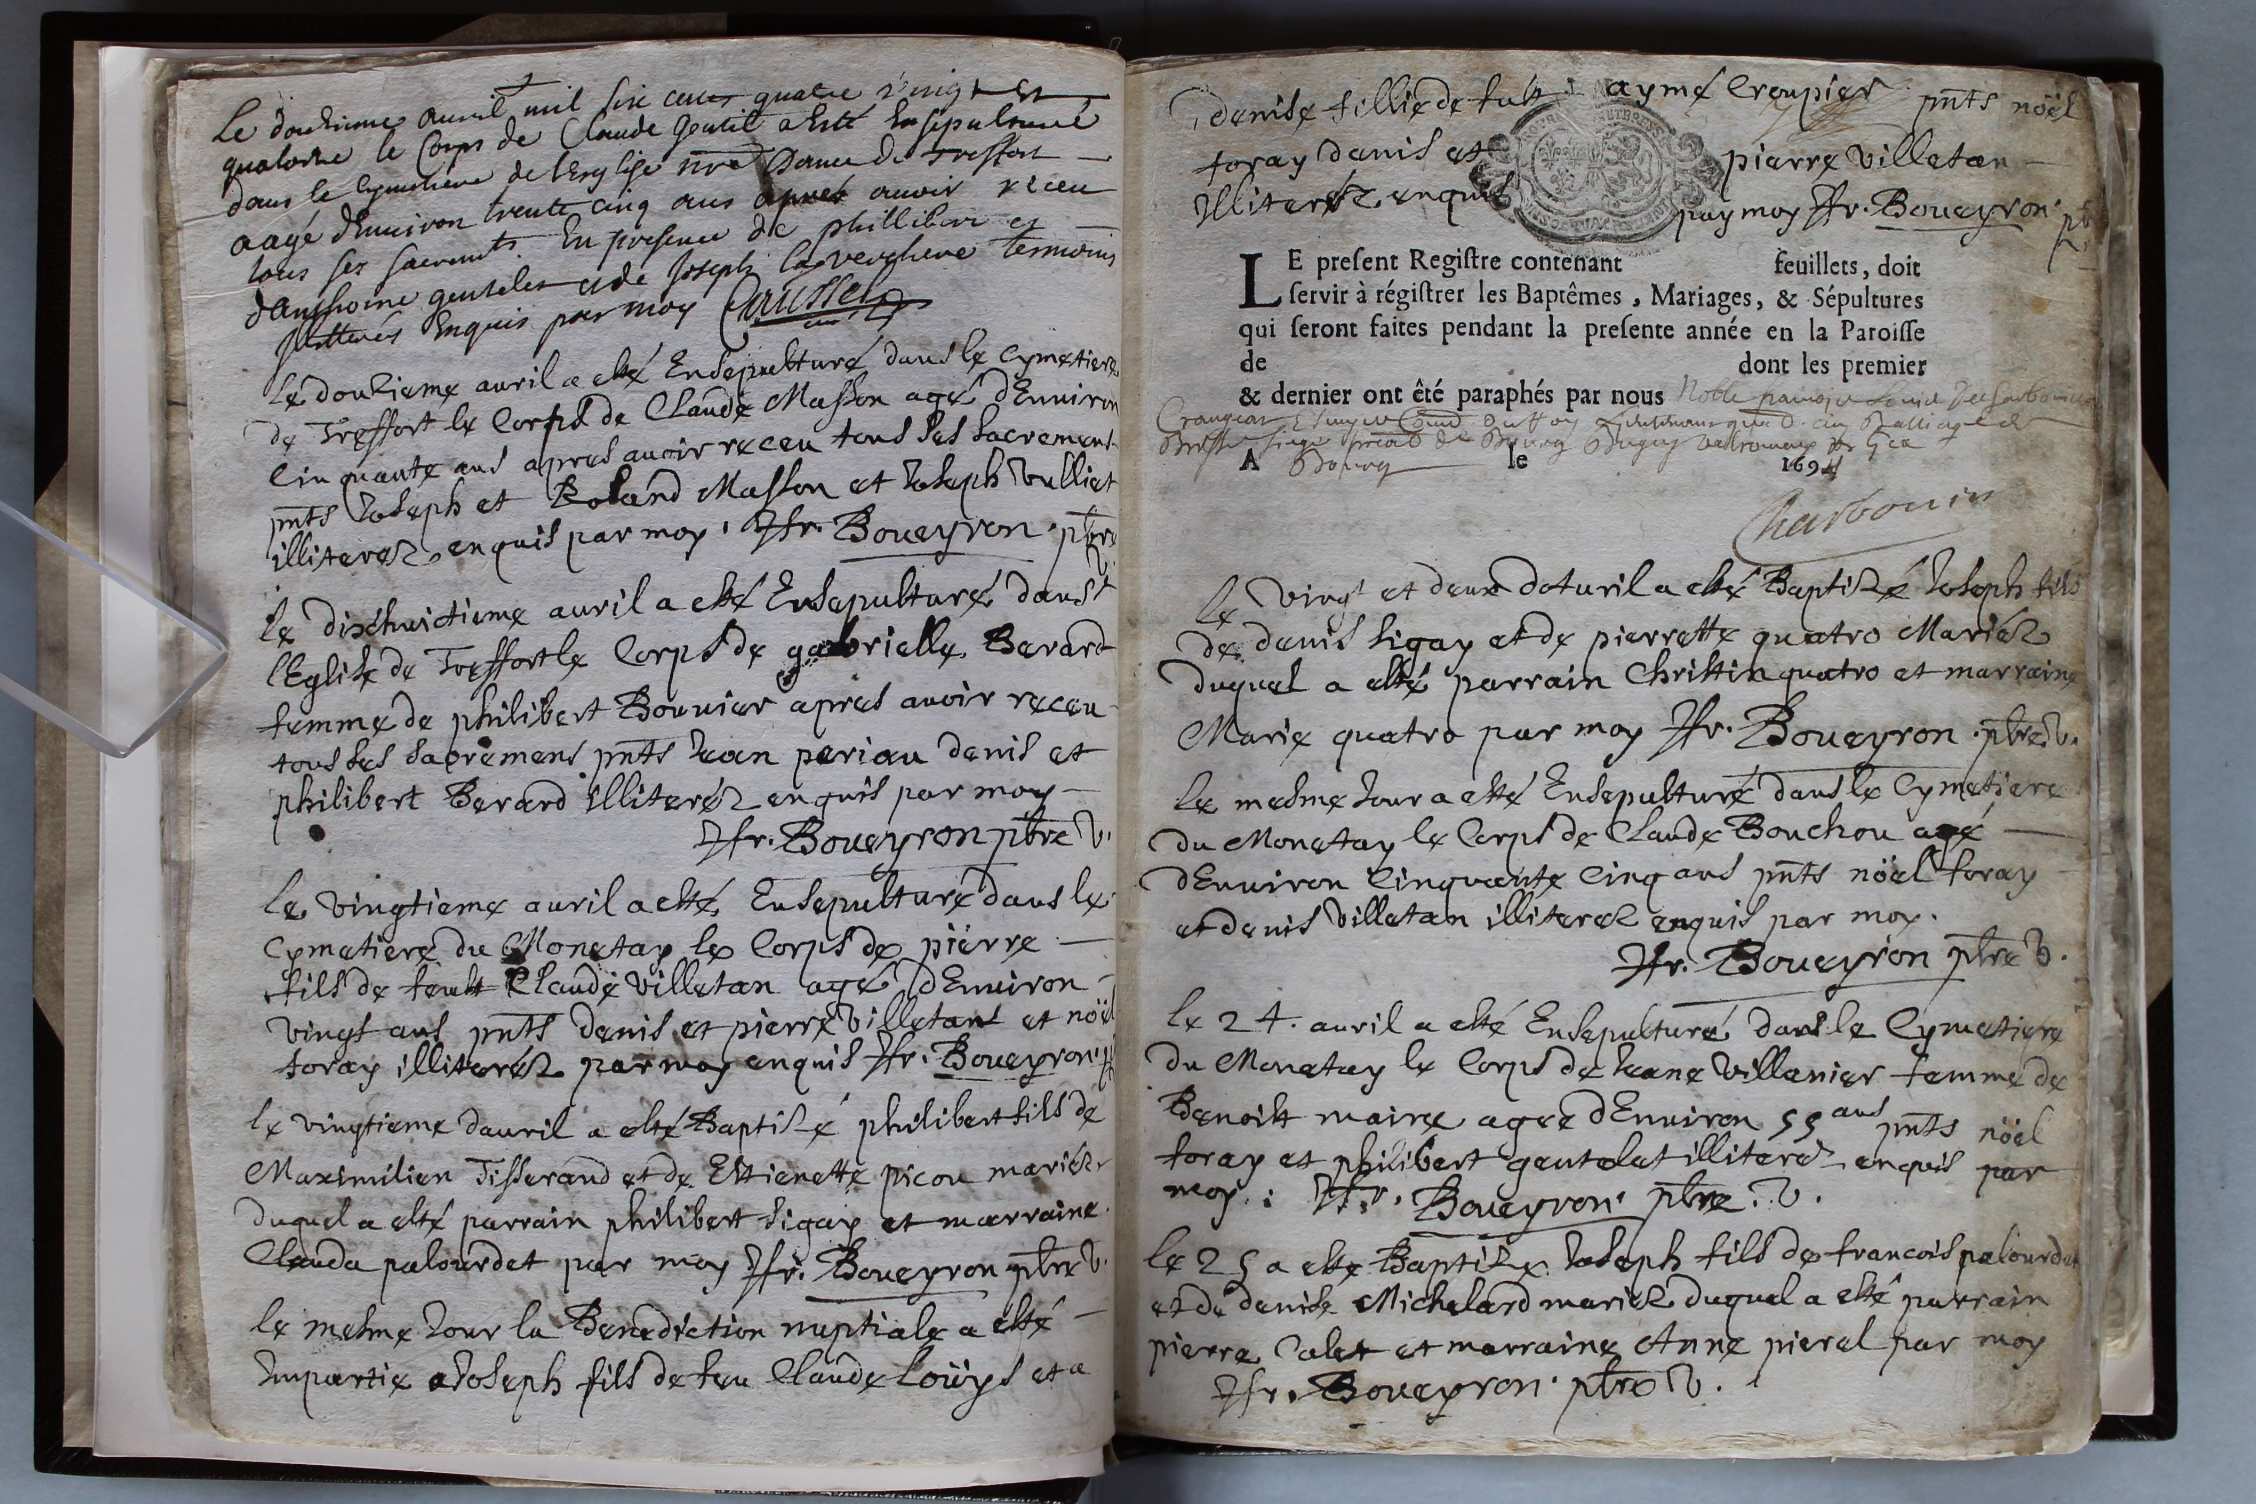 Le douzieme auril mil six cents quatre vingt et
quatorze le Corps de Claude Gentil a esté Ensepulturé
dans le Cymetiere de l'Esglise nre Dame de Treffort
aagé d'Enuiron trente cinq ans apres auoir receu
tous ses sacremts. En presence de phillibert et
d'Anthoine genteles et de Joseph la verchere temoins
illiterés Enquis par moy
Le douzieme auril a esté Ensepulturé dans le Cymetiere
de Treffort le Corps de Claude Masson agé d'Enuiron
Cinquante ans apres auoir receu tous ses sacremens
pnts Joseph et Roland Masson et Joseph Vulliet
illiterez enquis par moy. Jfr. Boueyron. ptre
le dixhuictieme auril a esté Ensepulturé dans
l'Eglise de Treffort le Corps de gabrielle Berard
femme de philibert Bouuier apres auoir receu
tous ses sacremens pnts Jean periau denis et
philibert Berard illiteréz enquis par moy
Jfr. Boueyron ptre V.
le vingtieme auril a esté Ensepulturé dans le
Cymetiere du Monetay le Corps de pierre
fils de feult Claude villetan agé d'Enuiron
vingt ans pnts denis et pierre villetans et nöel
foray illiteréz par moy enquis Jfr. Boueyron.
le vingtieme dauril a esté Baptizé philibert fils de
Maximilien Tisserand et de Estienette picou mariéz
duquel a esté parrain philibert sigay et marraine
Clauda palourdet par moy Jfr. Boueyron ptre V.
le mesme Jour la Benediction nuptiale a esté
Impartie a Joseph fils de feu Claude Loüys et a
denise fillie de fult aymé Croupier pnts nöel
foray denis et pierre villetan
Illiteréz enquis par moy Jfr. Boueyron. pt
LE present Registre contenant feuillets, doit
servir à régistrer les Baptêmes, Mariages, & Sépultures
qui seront faites pendant la presente année en la Paroisse
de dont les premier
& dernier ont êté paraphés par nous Noble
A Bourg le 1694
Charbonier
le vingt et deux dauril a esté Baptizé Joseph fils
de denis sigay et de pierrette quatro Mariéz
duquel a esté parrain Christin quatro et marraine
Marie quatro par moy Jfr. Boueyron. ptre. V.
le mesme Jour a esté Ensepulturé dans le Cymetiere
du Monetay le Corps de Claude Bouchou agé
d'Enuiron Cinquante Cinq ans pnts nöel foray
et denis villetan illiterez enquis par moy.
Jfr. Boueyron ptre V.
le 24. auril a esté Ensepulturé dans le Cymetiere
du Monetay le Corps de Jeane villanier femme de
Benoist maire agée d'Enuiron 55 ans pnts nöel
foray et philibert gentelet illiteréz enquis par
moy: Jfr. Boueyron. ptre. V.
le 25 a este Baptize Joseph fils de francois palourdet
et de denise Michelard mariez duquel a esté parrain
pierre Jalet et marraine Anne pierel par moy
Jfr. Boueyron. ptre V.